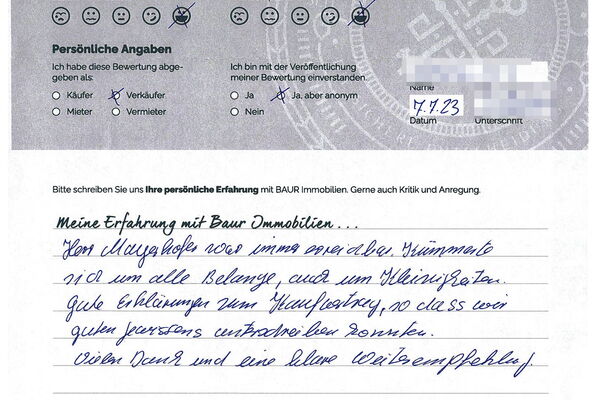 Persönliche Angaben
Ich habe diese Bewertung abge-
geben als:
Käufer
Verkäufer
Mieter
Vermieter
Ich bin mit der Veröffentlichung
meiner Bewertung einverstanden.
Ja
Ja, aber anonym
Nein
Name
7.7.23
Datum
Unterschrift
Bitte schreiben Sie uns Ihre persönliche Erfahrung mit BAUR Immobilien. Gerne auch Kritik und Anregung.
Meine Erfahrung mit Baur Immobilien . . .
Herr Mayerhofer war immer erreichbar. Kümmerte
sich um alle Belange, auch um Kleinigkeiten.
gute Erklärungen zum Kaufvertrag, so dass wir
guten Gewissens unterschreiben konnten.
Vielen Dank und eine klare Weiterempfehlung.